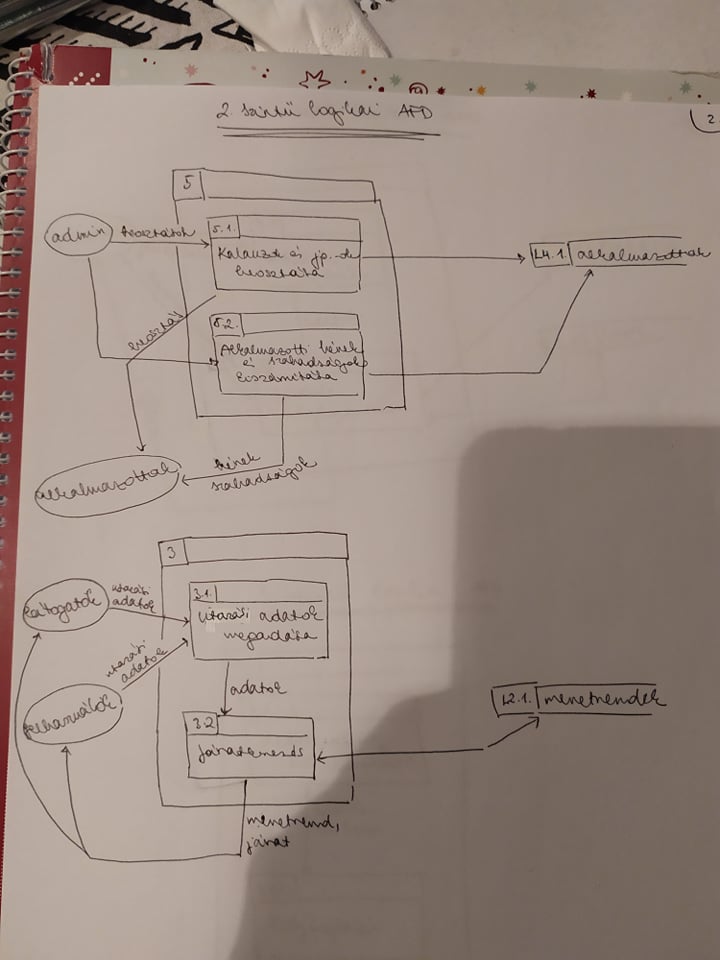 2. szintű logikai AFD
2.
5
5.1.
admin
beosztások
Kalauzok és jp.-ok
beosztása
L4.1.
alkalmazottak
beosztás
5.2.
Alkalmazotti bérek
és szabadságok
kiszámítása
alkalmazottak
bérek
szabadságok
3
3.1.
látogatók
utazási
adatok
utazási adatok
megadása
utazási
adatok
adatok
felhasználók
3.2
járatkeresés
L2.1.
menetrendek
menetrend,
járat